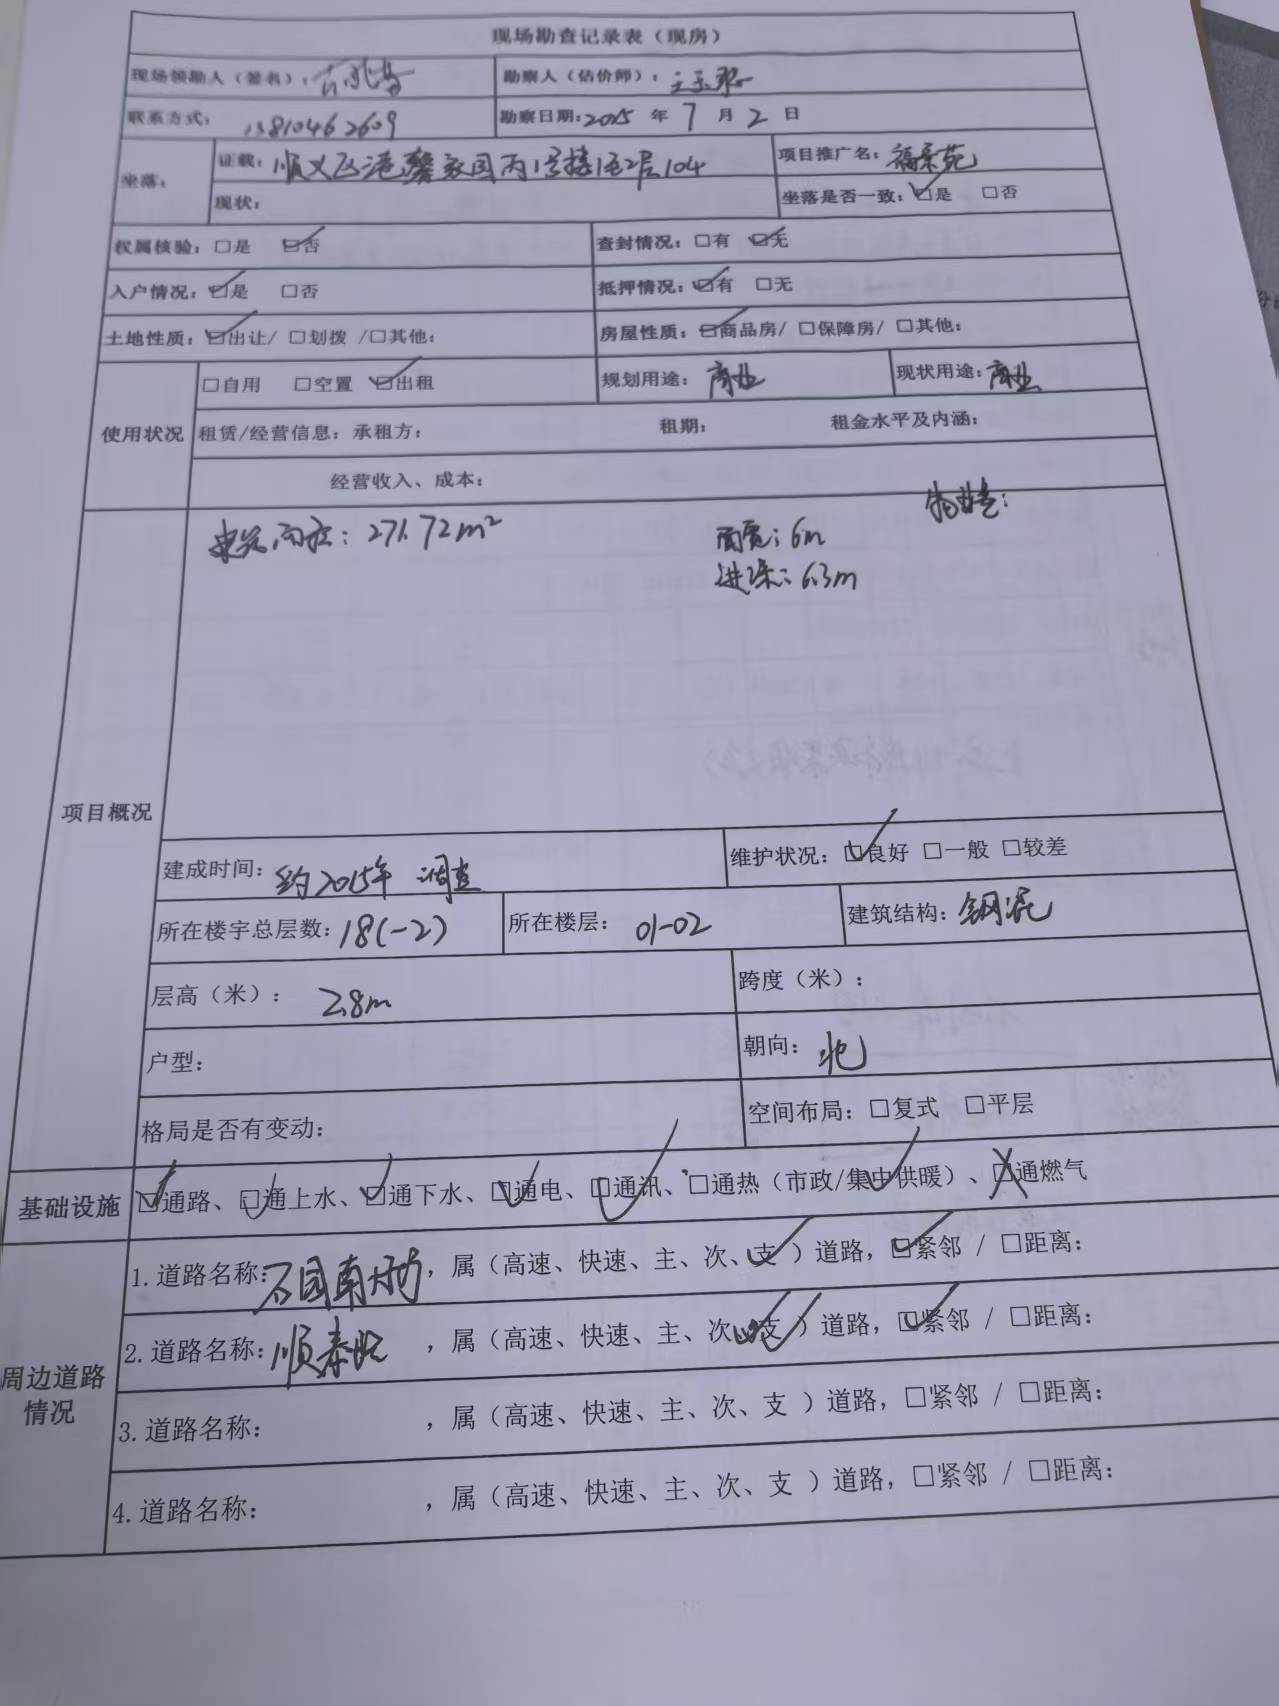 现场勘查记录表（现房）
现场领勘人（签名）： 勘察人（估价师）：
联系方式： 13810462609 勘察日期：2025 年 7 月 2 日
坐落： 证载：顺义区港馨家园丙1号楼1至2层104 项目推广名：福景苑
现状： 坐落是否一致：☑是 □否
权属核验：□是 ☑否 查封情况：□有 ☑无
入户情况：☑是 □否 抵押情况：☑有 □无
土地性质：☑出让/ □划拨 /□其他： 房屋性质：☑商品房/ □保障房/ □其他：
使用状况 □自用 □空置 ☑出租 规划用途：商业 现状用途：商业
租赁/经营信息：承租方： 租期： 租金水平及内涵：
经营收入、成本：
建筑面积：271.72m² 面宽：6m
进深：6.3m
项目概况
建成时间：约2015年 调查 维护状况：☑良好 □一般 □较差
所在楼宇总层数：18(-2) 所在楼层：01-02 建筑结构：钢混
层高（米）：2.8m 跨度（米）：
户型： 朝向：北
格局是否有变动： 空间布局：□复式 □平层
基础设施 ☑通路、☑通上水、☑通下水、☑通电、☑通讯、□通热（市政/集中供暖）、☒通燃气
周边道路情况
1.道路名称： ，属（高速、快速、主、次、支 ）道路，☑紧邻 / □距离：
2.道路名称：顺泰路 ，属（高速、快速、主、次、支 ）道路，☑紧邻 / □距离：
3.道路名称： ，属（高速、快速、主、次、支 ）道路，□紧邻 / □距离：
4.道路名称： ，属（高速、快速、主、次、支 ）道路，□紧邻 / □距离：